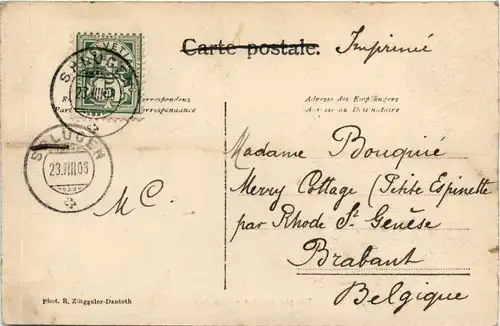 Carte postale. Imprimé
HELVETIA
5
SPLÜGEN
SPLÜGEN
23.VIII.05
Correspondenz
Correspondance
Adresse des Empfängers
Adresse du Destinataire
Madame Bouquié
Merry Cottage (Petite Espinette
par Rhode St Genèse
Brabant
Belgique
M C.
Phot. R. Zinggeler-Danioth